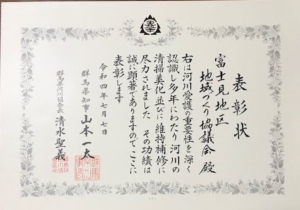 表彰状
富士見地区
地域づくり協議会 殿
右は河川愛護の重要性を深く
認識し多年にわたり河川の
清掃美化並びに維持補修に
尽力されました その功績は
誠に顕著でありますのでここに
表彰します
令和四年七月七日
群馬県知事 山本一太
清水聖義